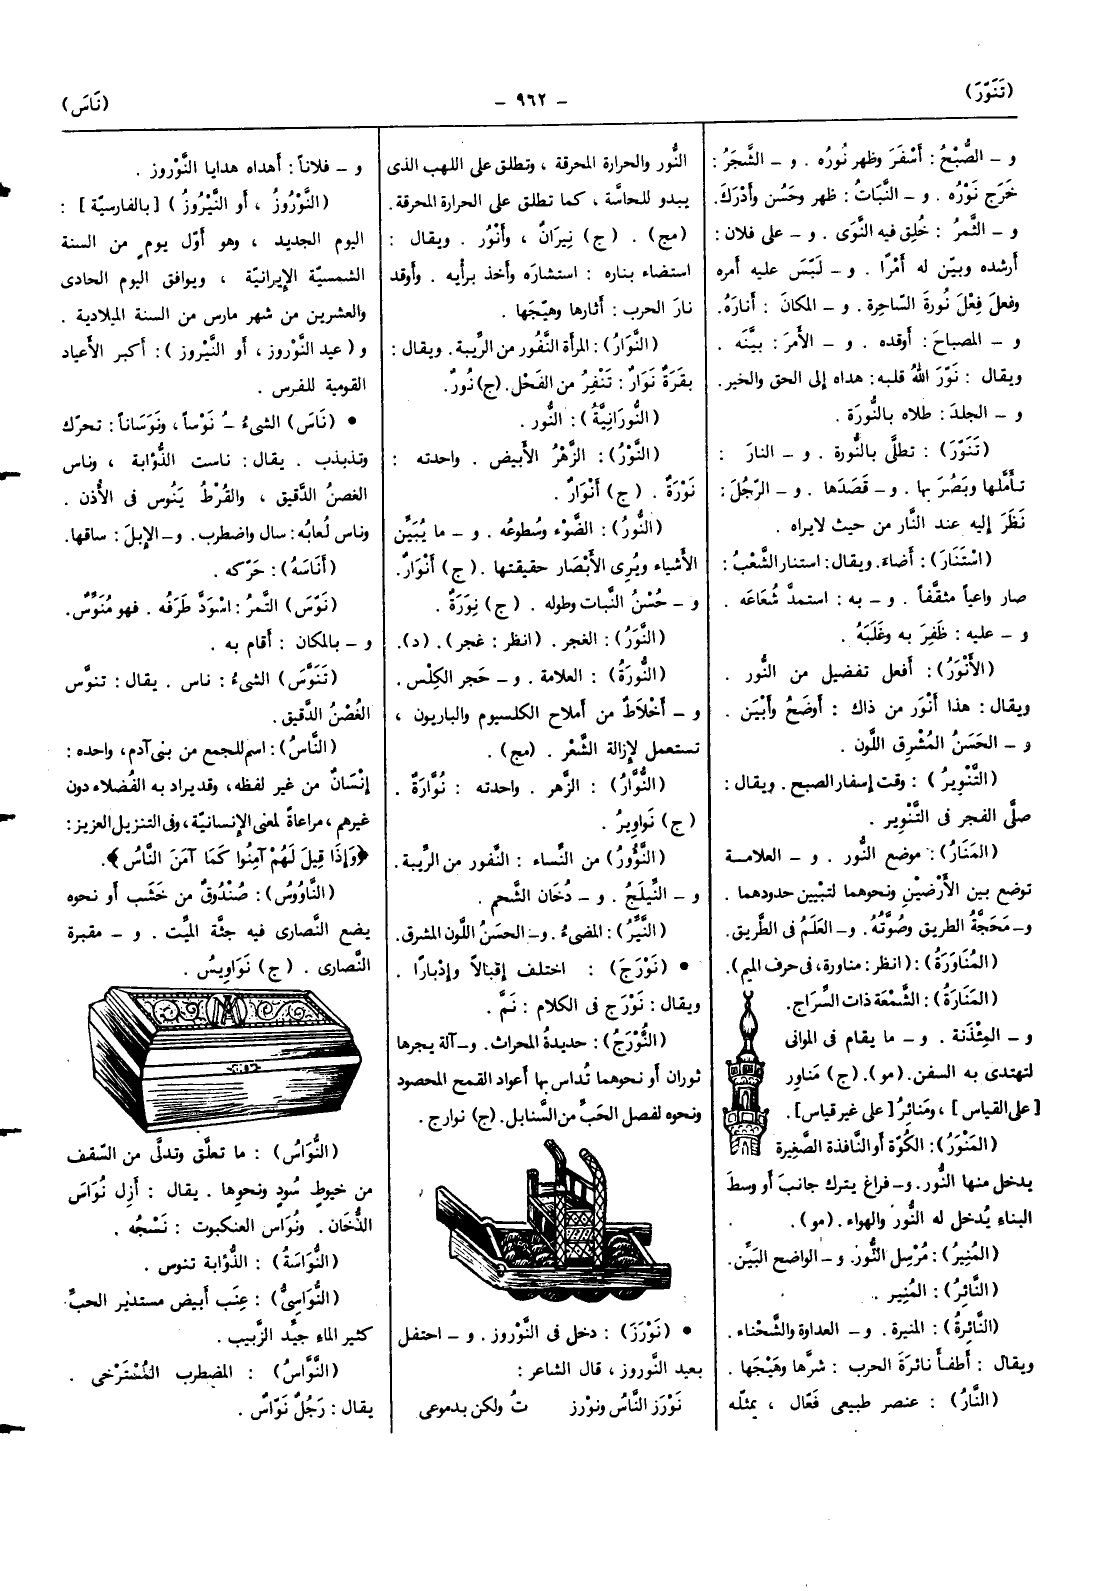 (تَنَوَّرَ)
– ٩٦٢ –
(نَاسَ)
و – الصُّبْحُ : أَسْفَرَ وظهر نُورُه . و – الشَّجَرُ :
خَرَج نَوْرُه . و – النَّبَاتُ : ظهر وحَسُن وأَدْرَكَ.
و – الثَّمرُ : خُلِق فيه النَّوَى . و – على فلان :
أرشده وبيّن له أَمْرًا . و – لَبَّسَ عليه أمره
وفعلَ فِعْلَ نُورةَ السَّاحِرة . و – المكانَ : أَنارَهُ.
و – المصباحَ : أوقده . و – الأَمرَ : بيَّنه .
ويقال : نَوَّرَ اللهُ قلبه : هداه إلى الحق والخير.
و – الجلدَ : طلاه بالنُّورَة .
(تَنَوَّرَ) : تطلَّى بالنُّورة . و – النارَ :
تأَمَّلها وبَصُرَ بها . و – قَصَدَها . و – الرَّجُلَ :
نَظَرَ إليه عند النَّار من حيث لا يراه .
(اسْتَنَارَ) : أضاءَ. ويقال : استنار الشَّعْبُ :
صار واعياً مثقَّفاً . و – به : استمدَّ شُعَاعَه .
و – عليه : ظَفِرَ به وغَلَبَهُ .
(الأَنْوَرُ) : أفعل تفضيل من النُّور .
ويقال : هذا أَنْوَر من ذاك : أَوضَحُ وأَبْيَن .
و – الحَسَنُ المُشْرِق اللَّون .
(التَّنْوِيرُ) : وقت إسفار الصبح . ويقال :
صلَّى الفجر فى التَّنْوِير .
(المَنَارُ) : موضع النُّور . و – العلامة
توضع بين الأَرْضَيْنِ ونحوهما لتبيّين حدودهما .
و – مَحَجَّةُ الطريق وصُوَّتُه . و – العَلَمُ فى الطَّريق.
(المُنَاوَرَةُ) : (انظر : مناورة، فى حرف الميم).
(المَنَارَةُ) : الشَّمْعَة ذات السِّرَاج.
و – المِئْذَنة . و – ما يقام فى الموانى
لتهتدى به السفن. (مو). (ج) مَنَاوِر
[على القياس] ، ومَنائِرُ [على غير قياس] .
(المَنْوَرُ) : الكُوَّة أو النَّافذة الصَّغِيرة
يدخل منها النُّور. و – فراغ يترك جانبَ أو وسطَ
البناء يُدخل له النُّور والهواء . (مو) .
(المُنِيرُ) : مُرْسِل النُّور. و – الواضح البَيِّن.
(النَّائِرُ) : المُنِير .
(النَّائِرةُ) : المنيرة . و – العداوة والشَّحْناء .
ويقال : أطفأَ نائرَةَ الحرب : شرَّها وهَيْجَها .
(النَّارُ) : عنصر طبيعى فَعّال ، يمثِّله
النُّور والحرارة المحرقة ، وتطلق على اللهب الذى
يبدو للحاسَّة ، كما تطلق على الحرارة المحرقة.
(مج) . (ج) نِيرَانٌ ، وأَنْوُر . ويقال :
استضاء بناره : استشارَه وأخذ برأيه . وأوقد
نارَ الحرب : أثارها وهيّجها .
(النَّوَارُ) : المرأة النَّفُور من الرِّيبة. ويقال :
بقرَةٌ نَوَارٌ : تَنْفِرُ من الفَحْل. (ج) نُورٌ.
(النُّورَانِيَّةُ) : النُّور .
(النَّوْرُ) : الزَّهْرُ الأَبيض . واحدته :
نَوْرَةٌ . (ج) أَنْوَارٌ .
(النُّورُ) : الضَّوْء وسُطوعُه . و – ما يُبَيِّن
الأشياء ويُرِى الأَبْصَار حقيقتها . (ج) أَنْوَارٌ.
و – حُسْنُ النَّبات وطوله . (ج) نِوَرَةٌ .
(النَّوَرُ) : الغجر . (انظر : غجر) . (د).
(النُّورَةُ) : العلامة . و – حَجر الكِلْس .
و – أَخْلَاطٌ من أملاح الكلسيوم والباريون ،
تستعمل لإزالة الشَّعْر . (مج) .
(النُّوَّارُ) : الزَّهر . واحدته : نُوَّارَةٌ .
(ج) نَواوِيرُ .
(النُّؤُورُ) من النِّساء : النَّفُور من الرِّيبة .
و – النِّيلَجُ . و – دُخَان الشَّحم .
(النَّيِّرُ) : المضىءُ . و – الحسَنُ اللَّون المشرق.
• (نَوْرَجَ) : اختلف إقبالاً وإدْبارًا .
ويقال : نَوْرَج فى الكلام : نَمَّ .
(النُّوْرَجُ) : حديدةُ المحراث. و – آلة يجرها
ثوران أو نحوهما تُداس بها أعواد القمح المحصود
ونحوه لفصل الحَبِّ من السَّنابل. (ج) نوارج .
• (نَوْرَزَ) : دخل فى النَّوْروز . و – احتفل
بعيد النَّوروز ، قال الشاعر :
نَوْرَز النَّاسُ ونَوْرز تُ ولكن بدموعى
و – فلاناً : أهداه هدايا النَّوْروز .
(النَّوْرُوزُ ، أو النَّيْرُوزُ) [بالفارسيّة] :
اليوم الجديد ، وهو أَوّل يومٍ من السنة
الشمسيّة الإيرانيّة ، ويوافق اليوم الحادى
والعشرين من شهر مارس من السنة الميلادية .
و (عيد النَّوْروز ، أو النَّيْروز) : أكبر الأَعياد
القومية للفرس .
• (نَاسَ) الشىءُ – ُ نَوْساً ، ونَوَسَاناً : تحرّك
وتذبذب . يقال : ناست الذُّؤابة ، وناس
الغصنُ الدَّقيق ، والقُرْطُ يَنُوس فى الأُذن .
وناس لُعابُه : سال واضطرب. و – الإبلَ : ساقها.
(أَنَاسَهُ) : حَرّكه .
(نَوَّسَ) التَّمرُ : اسْوَدَّ طَرَفُه . فهو مُنَوِّسٌ.
و – بالمكان : أقام به .
(تَنَوَّسَ) الشىءُ : ناس . يقال : تنوّس
الغُصْنُ الدَّقيق .
(النَّاسُ) : اسم للجمع من بنى آدم ، واحده :
إِنْسَانٌ من غير لفظه ، وقد يراد به الفُضلاء دون
غيرهم ، مراعاةً لمعنى الإنسانيّة ، وفى التنزيل العزيز :
﴿وَإِذَا قِيلَ لَهُمْ آمِنُوا كَمَا آمَنَ النَّاسُ﴾.
(النَّاوُوسُ) : صُنْدُوقٌ من خَشَب أو نحوه
يضع النَّصارى فيه جثَّة الميِّت . و – مقبرة
النَّصارى . (ج) نَوَاوِيسُ .
(النُّوَاسُ) : ما تعلَّق وتدلَّى من السَّقف
من خيوطٍ سُودٍ ونحوِها . يقال : أَزِل نُوَاسَ
الدُّخَان . ونُوَاس العنكبوت : نَسْجُه .
(النُّوَاسَةُ) : الذُّؤابة تنوس .
(النُّوَاسِىُّ) : عِنَب أبيض مستدير الحبِّ
كثير الماء جيِّد الزَّبيب .
(النَّوَّاسُ) : المضطرب المُسْتَرْخى .
يقال : رَجُلٌ نَوّاسٌ .